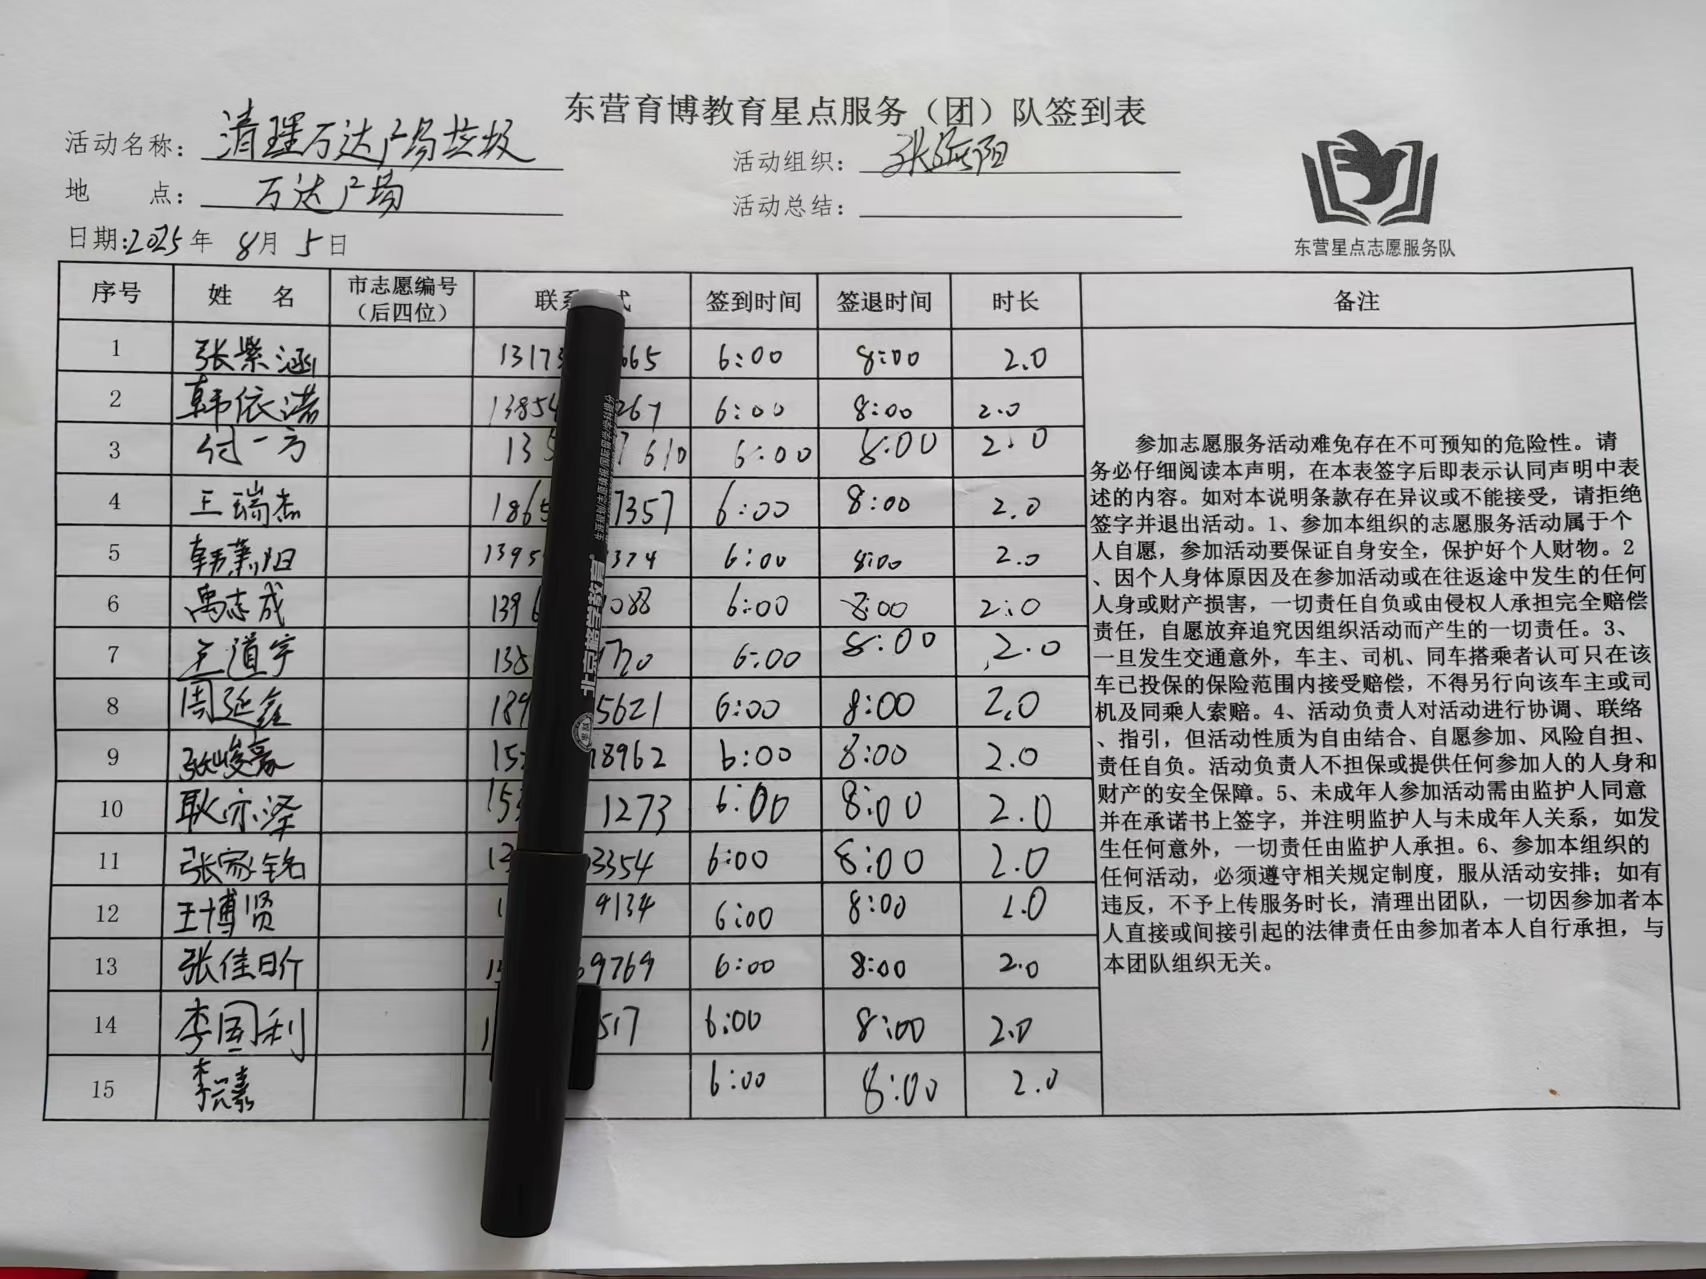 东营育博教育星点服务（团）队签到表
活动名称：清理万达广场垃圾
活动组织：张 阳
地 点：万达广场
活动总结：
东营星点志愿服务队
日期:2025年 8月 5日
序号 姓 名 市志愿编号（后四位） 联系 式 签到时间 签退时间 时长 备注
1 张紫涵 1317 665 6:00 8:00 2.0
2 韩依诺 13854 267 6:00 8:00 2.0
3 付一方 135 7610 6:00 8:00 2.0
4 王瑞杰 1865 7357 6:00 8:00 2.0
5 韩萧阳 1395 374 6:00 8:00 2.0
6 禹志成 1396 088 6:00 8:00 2.0
7 王道宇 138 1720 6:00 8:00 2.0
8 周延鑫 189 5621 6:00 8:00 2.0
9 张峻豪 15 18962 6:00 8:00 2.0
10 耿亦泽 153 1273 6:00 8:00 2.0
11 张家铭 13 3354 6:00 8:00 2.0
12 王博贤 1 9134 6:00 8:00 2.0
13 张佳昕 15 69769 6:00 8:00 2.0
14 李国利 1 517 6:00 8:00 2.0
15 李 6:00 8:00 2.0
参加志愿服务活动难免存在不可预知的危险性。请
务必仔细阅读本声明，在本表签字后即表示认同声明中表
述的内容。如对本说明条款存在异议或不能接受，请拒绝
签字并退出活动。1、参加本组织的志愿服务活动属于个
人自愿，参加活动要保证自身安全，保护好个人财物。2
、因个人身体原因及在参加活动或在往返途中发生的任何
人身或财产损害，一切责任自负或由侵权人承担完全赔偿
责任，自愿放弃追究因组织活动而产生的一切责任。3、
一旦发生交通意外，车主、司机、同车搭乘者认可只在该
车已投保的保险范围内接受赔偿，不得另行向该车主或司
机及同乘人索赔。4、活动负责人对活动进行协调、联络
、指引，但活动性质为自由结合、自愿参加、风险自担、
责任自负。活动负责人不担保或提供任何参加人的人身和
财产的安全保障。5、未成年人参加活动需由监护人同意
并在承诺书上签字，并注明监护人与未成年人关系，如发
生任何意外，一切责任由监护人承担。6、参加本组织的
任何活动，必须遵守相关规定制度，服从活动安排；如有
违反，不予上传服务时长，清理出团队，一切因参加者本
人直接或间接引起的法律责任由参加者本人自行承担，与
本团队组织无关。
北京